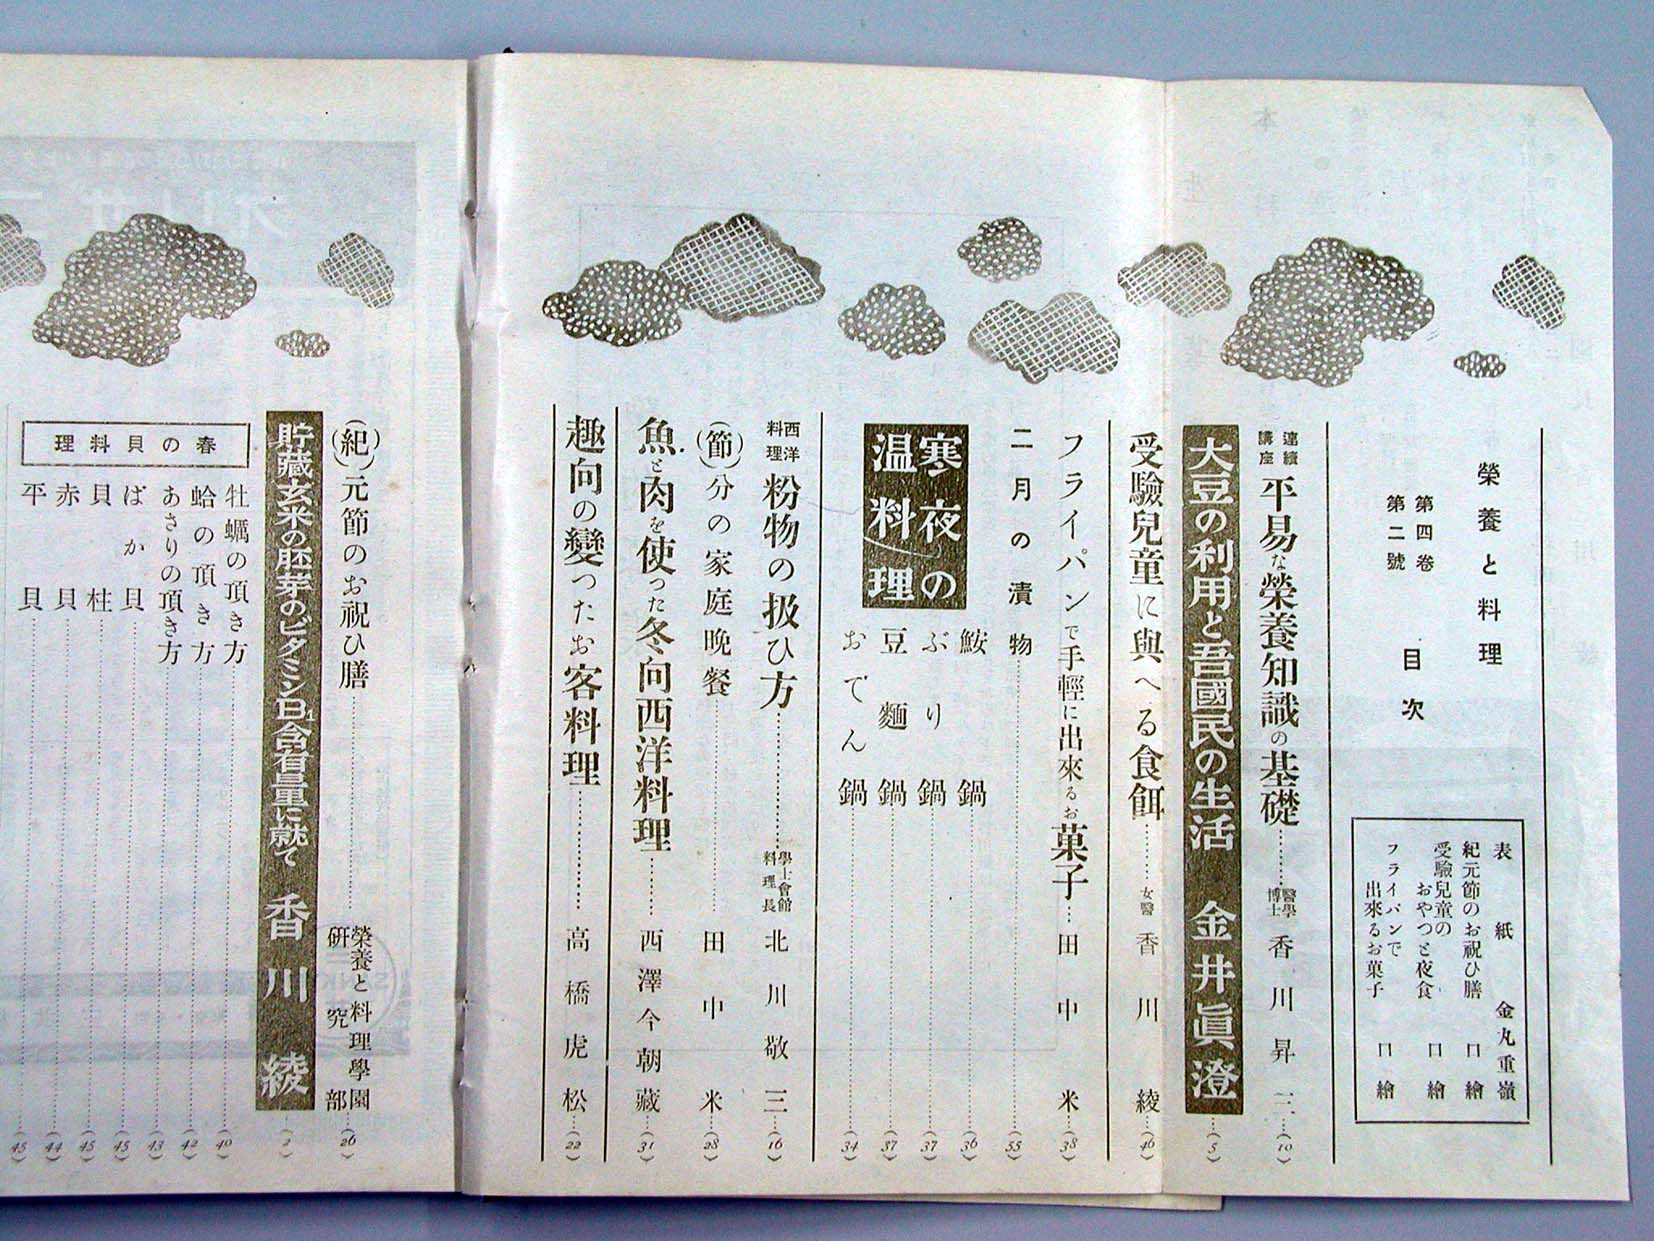 榮養と料理
第四卷
第二號
目次
表紙 金丸重嶺
紀元節のお祝ひ膳 口繪
受驗兒童の
おやつと夜食 口繪
フライパンで
出來るお菓子 口繪
連續講座 平易な榮養知識の基礎……醫學博士 香川昇三…(10)
大豆の利用と吾國民の生活 金井眞澄…(5)
受驗兒童に與へる食餌……女醫 香川綾…(46)
フライパンで手輕に出來るお菓子…田中米…(38)
二月の漬物…(55)
寒夜の
温料理
鮟鍋…(36)
ぶり鍋…(37)
豆麵鍋…(37)
おでん鍋…(34)
西洋料理 粉物の扱ひ方……學士會館料理長 北川敬三…(16)
(節)分の家庭晩餐……田中米…(28)
魚と肉を使った冬向西洋料理……西澤今朝藏…(31)
趣向の變つたお客料理……高橋虎松…(22)
(紀)元節のお祝ひ膳……榮養と料理學園研究部…(26)
貯藏玄米の胚芽のビタミンB1含有量に就て 香川綾…(2)
春の貝料理
牡蠣の頂き方…(40)
蛤の頂き方…(42)
あさりの頂き方…(43)
ばか貝…(45)
貝柱…(45)
赤貝…(44)
平貝…(45)